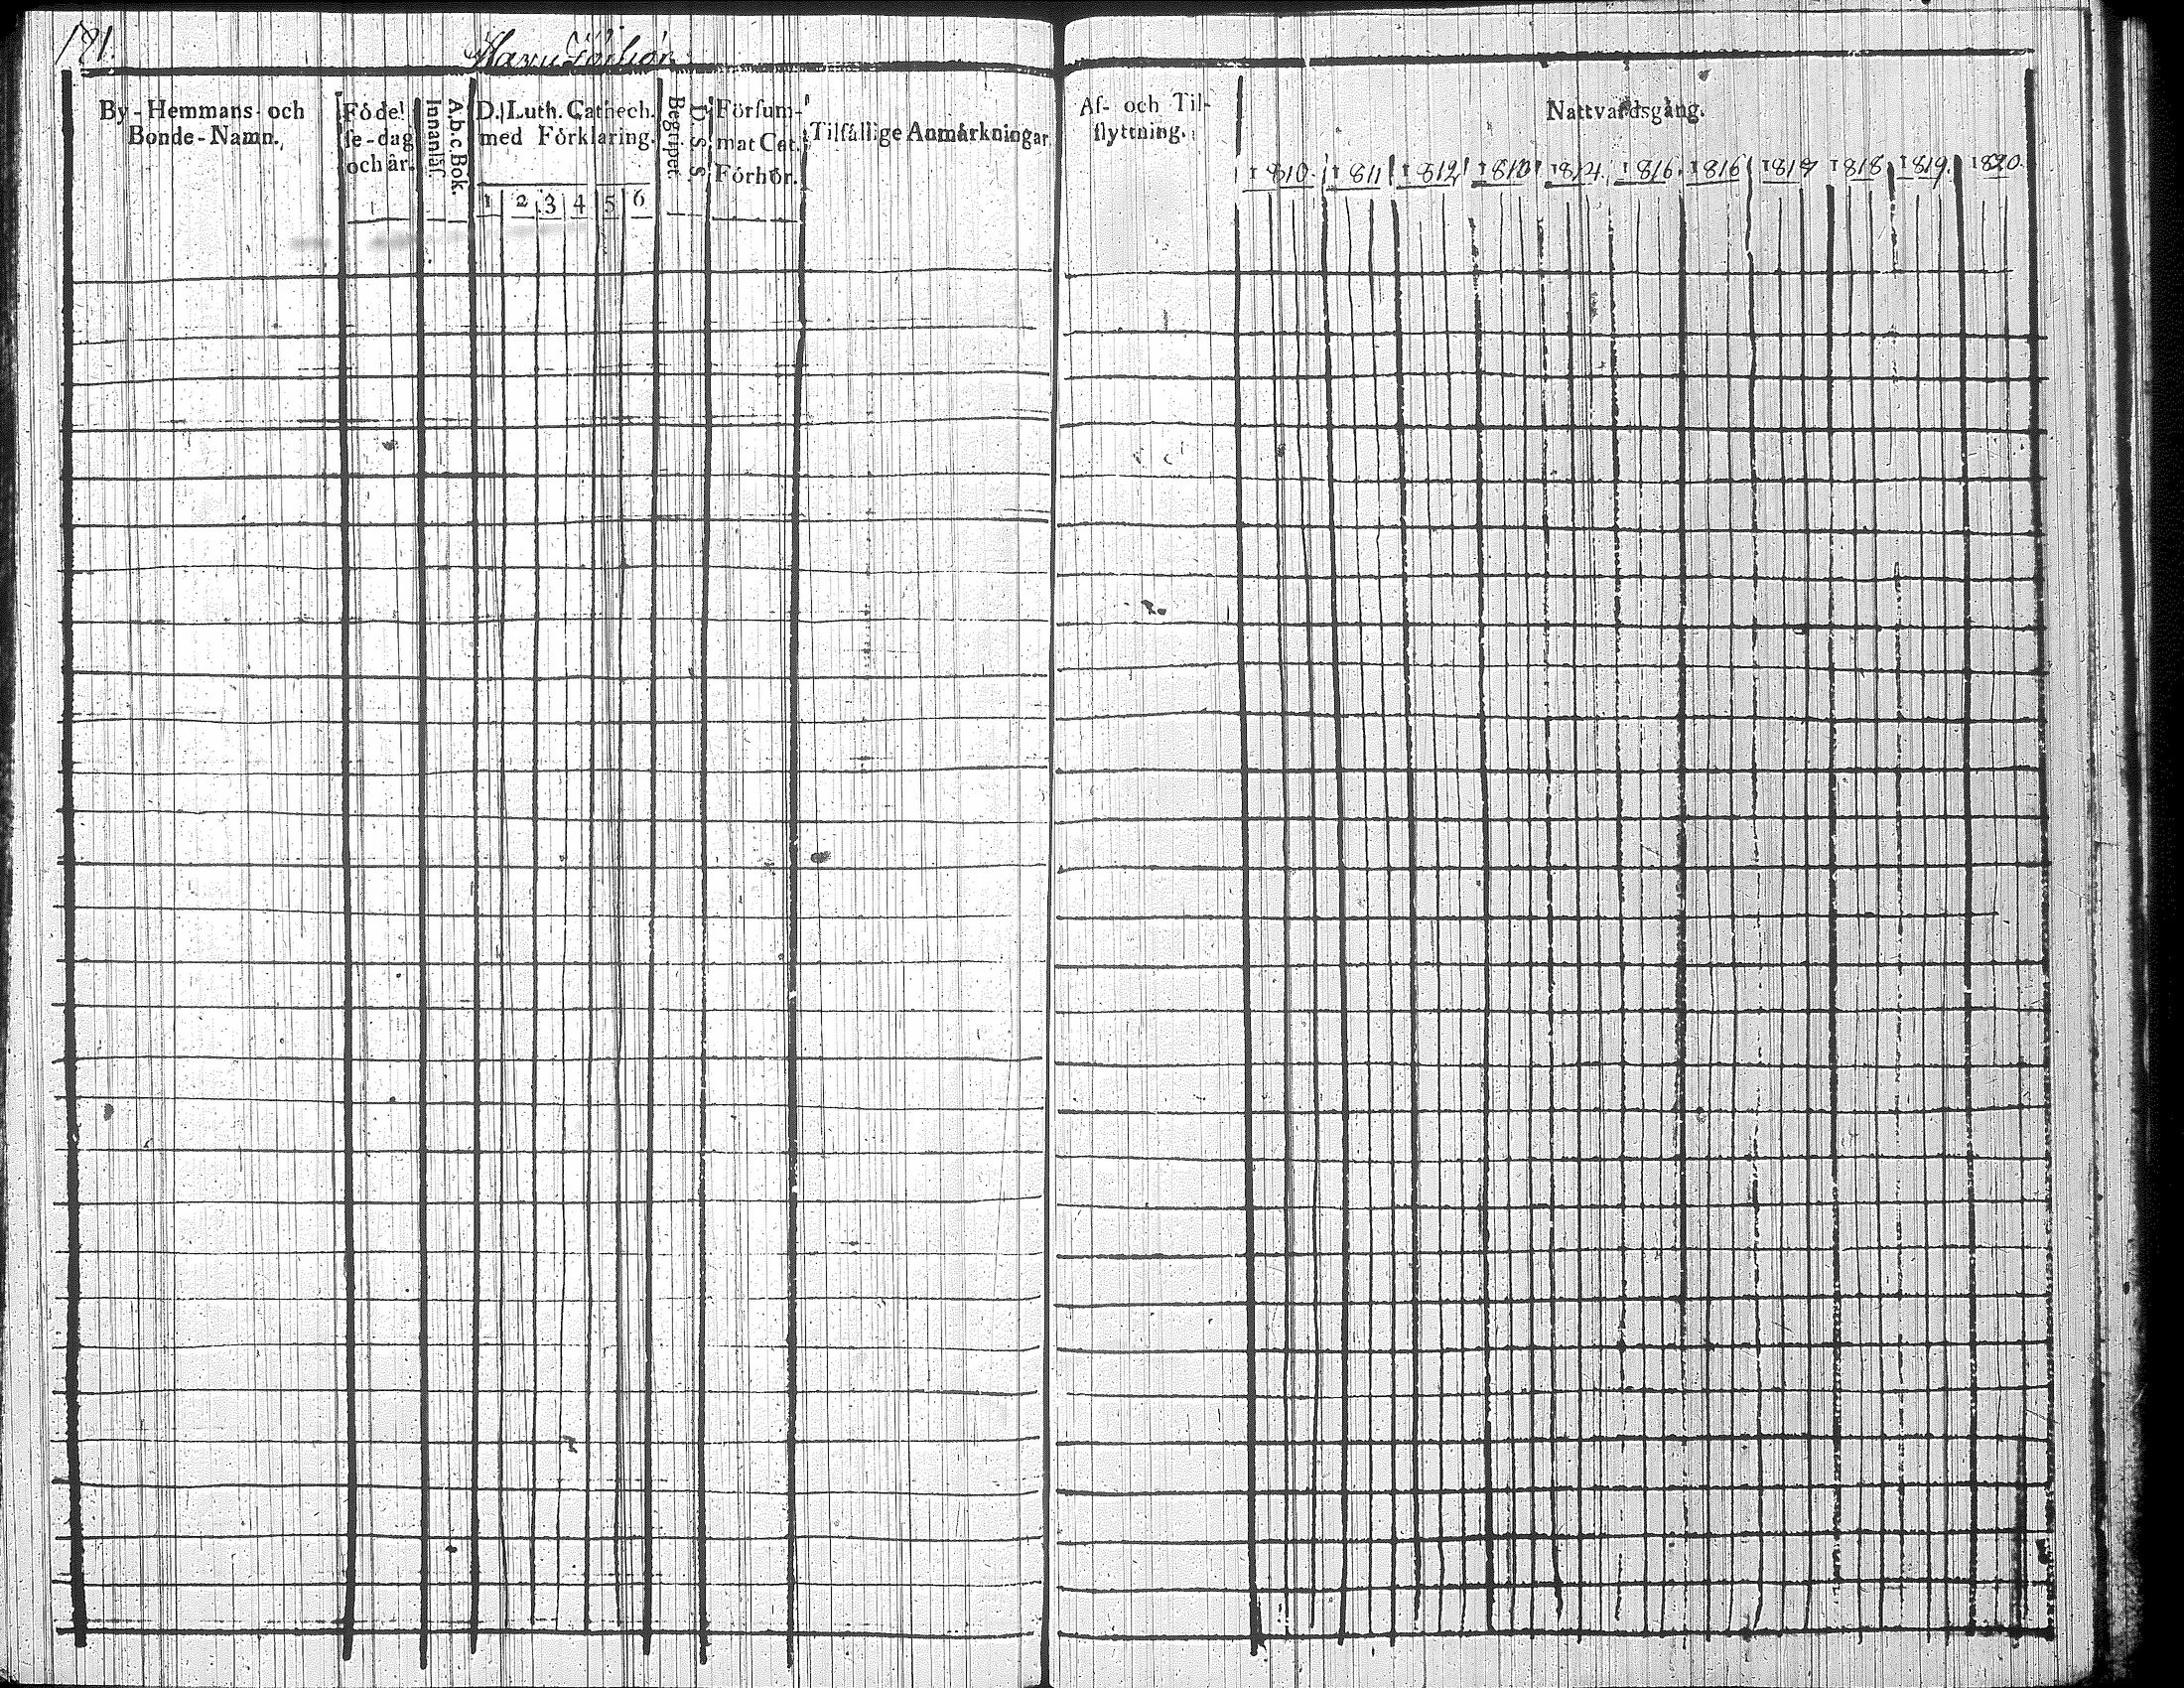 181.
By-Hemmans- och
Bonde-Namn.
Födel-
se-dag
och år.
A.b.c. Bok.
Innanläs.
D. Luth. Cathech.
med Förklaring.
1 2 3 4 5 6
D. S. S.
Begripet
Försum-
mat Cat.
Förhör.
Tilfällige Anmärkningar
Af- och Til-
flyttning.
Nattvardsgång.
1810. 1811 1812 1813 1814. 1816. 1816 1817 1818 1819. 1820.